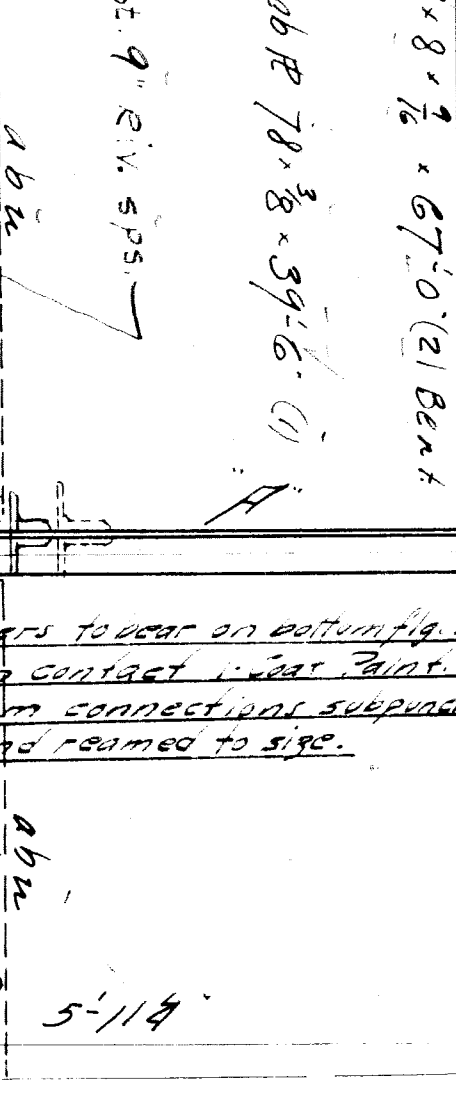 × 8 × 9/16 × 67'-0" (2) Bent
ab ⅊ 78 × 3/8 × 39'-6" (1)
t. 9" Riv. sps.
abu
"A"
ers to bear on bottom flg.
contact 1-Coat Paint.
m connections subpunc
nd reamed to size.
abu
5'-11